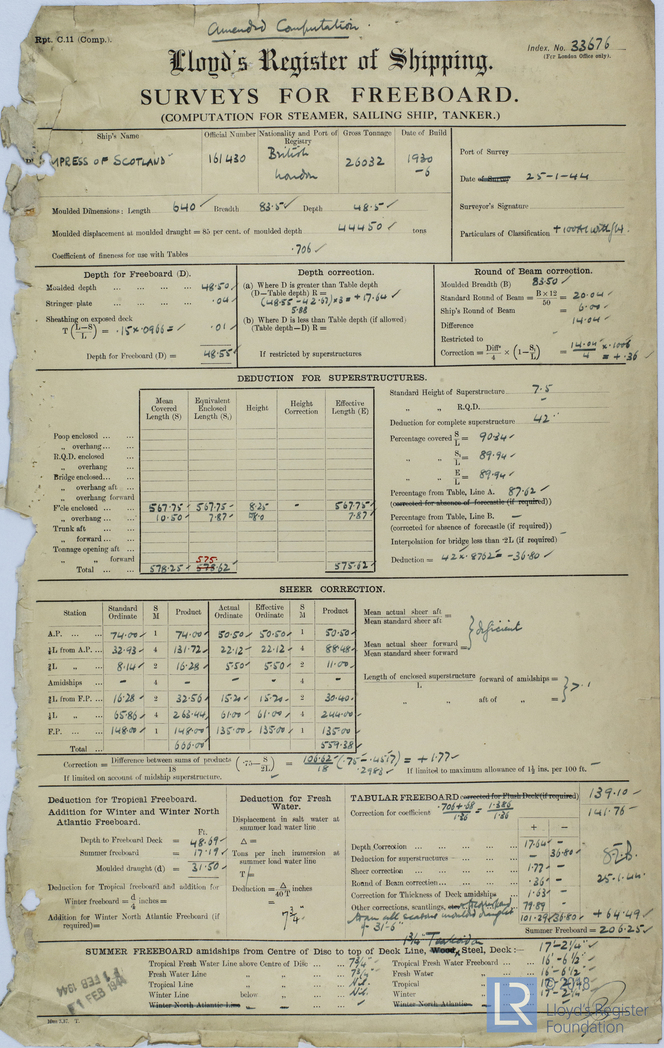 Amended Computation.
Rpt. C.11 (Comp.).
Index. No. 33676
(For London Office only).
Lloyd's Register of Shipping.
SURVEYS FOR FREEBOARD.
(COMPUTATION FOR STEAMER, SAILING SHIP, TANKER.)
Ship's Name Official Number Nationality and Port of Registry Gross Tonnage Date of Build
MPRESS OF SCOTLAND" 161430 British London 26032 1930 -6
Port of Survey
Date of Survey 25-1-44
Surveyor's Signature
Particulars of Classification +100A1
Moulded Dimensions: Length 640 Breadth 83.5 Depth 48.5
Moulded displacement at moulded draught = 85 per cent. of moulded depth 44450 tons
Coefficient of fineness for use with Tables .706
Depth for Freeboard (D).
Moulded depth 48.50
Stringer plate .04
Sheathing on exposed deck
T (L-S/L) = .15 x .0966 = .01
Depth for Freeboard (D) = 48.55
Depth correction.
(a) Where D is greater than Table depth
(D—Table depth) R =
(48.55 - 42.67) x 3 = +17.64
5.88
(b) Where D is less than Table depth (if allowed)
(Table depth—D) R =
If restricted by superstructures
Round of Beam correction.
Moulded Breadth (B) 83.50
Standard Round of Beam = B x 12/50 = 20.04
Ship's Round of Beam = 6.00
Difference 14.04
Restricted to
Correction = Diffce/4 x (1-S₁/L) = 14.04/4 x .1006 = +.36
DEDUCTION FOR SUPERSTRUCTURES.
Mean Covered Length (S) Equivalent Enclosed Length (S₁) Height Height Correction Effective Length (E)
Poop enclosed
„ overhang
R.Q.D. enclosed
„ overhang
Bridge enclosed
„ overhang aft
„ overhang forward
F'cle enclosed 567.75 567.75 8.25 - 567.75
„ overhang 10.50 7.87 8.0 7.87
Trunk aft
„ forward
Tonnage opening aft
„ „ forward 575.
Total 578.25 575.62 575.62
Standard Height of Superstructure 7.5
„ „ R.Q.D. -
Deduction for complete superstructure 42
Percentage covered S/L = 90.34
„ „ S₁/L = 89.94
„ „ E/L = 89.94
Percentage from Table, Line A. 87.62
(corrected for absence of forecastle (if required))
Percentage from Table, Line B.
(corrected for absence of forecastle (if required))
Interpolation for bridge less than ·2L (if required) -
Deduction = 42 x .8762 = -36.80
SHEER CORRECTION.
Station Standard Ordinate S M Product Actual Ordinate Effective Ordinate S M Product
A.P. 74.00 1 74.00 50.50 50.50 1 50.50
⅙L from A.P. 32.93 4 131.72 22.12 22.12 4 88.48
⅓L „ 8.14 2 16.28 5.50 5.50 2 11.00
Amidships - 4 - - - 4 -
⅓L from F.P. 16.28 2 32.56 15.20 15.20 2 30.40
⅙L „ 65.86 4 263.44 61.00 61.00 4 244.00
F.P. 148.00 1 148.00 135.00 135.00 1 135.00
Total 666.00 559.38
Mean actual sheer aft / Mean standard sheer aft =
Mean actual sheer forward / Mean standard sheer forward = } deficient
Length of enclosed superstructure / L forward of amidships =
„ „ aft of „ = } >.1
Correction = Difference between sums of products/18 (·75 - S/2L) = 106.62/18 (.75 - .4517) = +1.77
.2983
If limited on account of midship superstructure. If limited to maximum allowance of 1½ ins. per 100 ft. -
Deduction for Tropical Freeboard.
Addition for Winter and Winter North Atlantic Freeboard.
Ft.
Depth to Freeboard Deck = 48.69
Summer freeboard = 17.19
Moulded draught (d) = 31.50
Deduction for Tropical freeboard and addition for Winter freeboard = d/4 inches =
Addition for Winter North Atlantic Freeboard (if required) =
Deduction for Fresh Water.
Displacement in salt water at summer load water line
Δ =
Tons per inch immersion at summer load water line
T =
Deduction = Δ/40T inches
=
7¾"
TABULAR FREEBOARD corrected for Flush Deck (if required) 139.10
Correction for coefficient .706 + .68 / 1.36 = 1.386 / 1.36 141.76
+ -
Depth Correction 17.64 -
Deduction for superstructures - 36.80
Sheer correction 1.77 -
Round of Beam correction .36 -
Correction for Thickness of Deck amidships 1.63 -
Other corrections, scantlings, 79.89
To an all seasons moulded draught of 31'-6" 101.29 36.80 +64.49
25.1.44
Summer Freeboard = 206.25
SUMMER FREEBOARD amidships from Centre of Disc to top of Deck Line, Wood, Steel, Deck:— 17'-2¼"
Tropical Fresh Water Line above Centre of Disc 7¾" Tropical Fresh Water Freeboard 16'-6½"
Fresh Water Line „ 7¾" Fresh Water „ 16'-6½"
Tropical Line „ Nil. Tropical „
Winter Line below „ Nil. Winter „ 17-2¼
Winter North Atlantic Line „ Winter North Atlantic „
1 FEB 1944
1 FEB 1944
LR
Lloyd's Register
Foundation